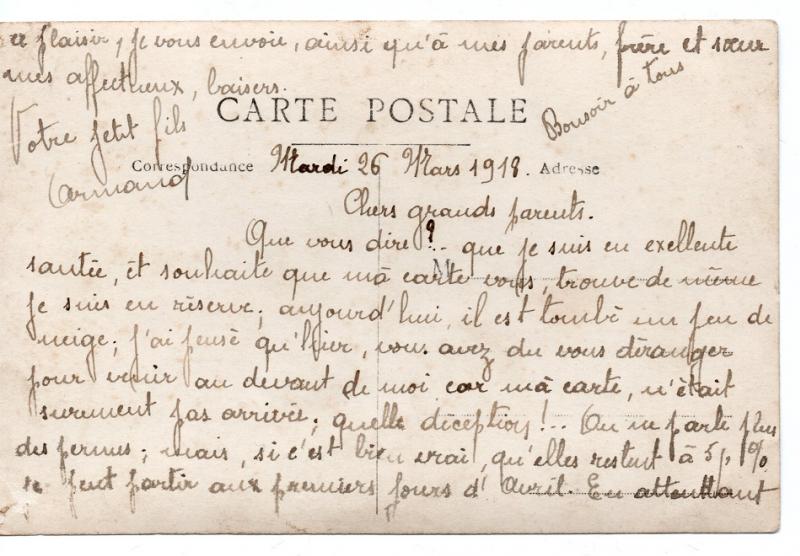 ce plaisir, je vous envoie, ainsi qu'à mes parents, frère et sœur
mes affectueux, baisers.
Bonsoir à tous
Votre petit fils
Armand
CARTE POSTALE
Correspondance Mardi 26 Mars 1918. Adresse
Chers grands parents.
Que vous dire ?.. que je suis en exellente
santée, èt souhaite que mà carte vous, trouve de même
M
je suis en réserve; aujourd'hui, il est tombé un peu de
neige; j'ai pensè qu'hier, vous avez du vous déranger
pour venir au devant de moi car mà carte, n'était
surement pas arrivée; quelle déception!.. On ne parle plus
des permes; mais, si c'est bien vrai, qu'elles restent à 5, %
je peut partir aux premiers jours d'Avril. En attendant